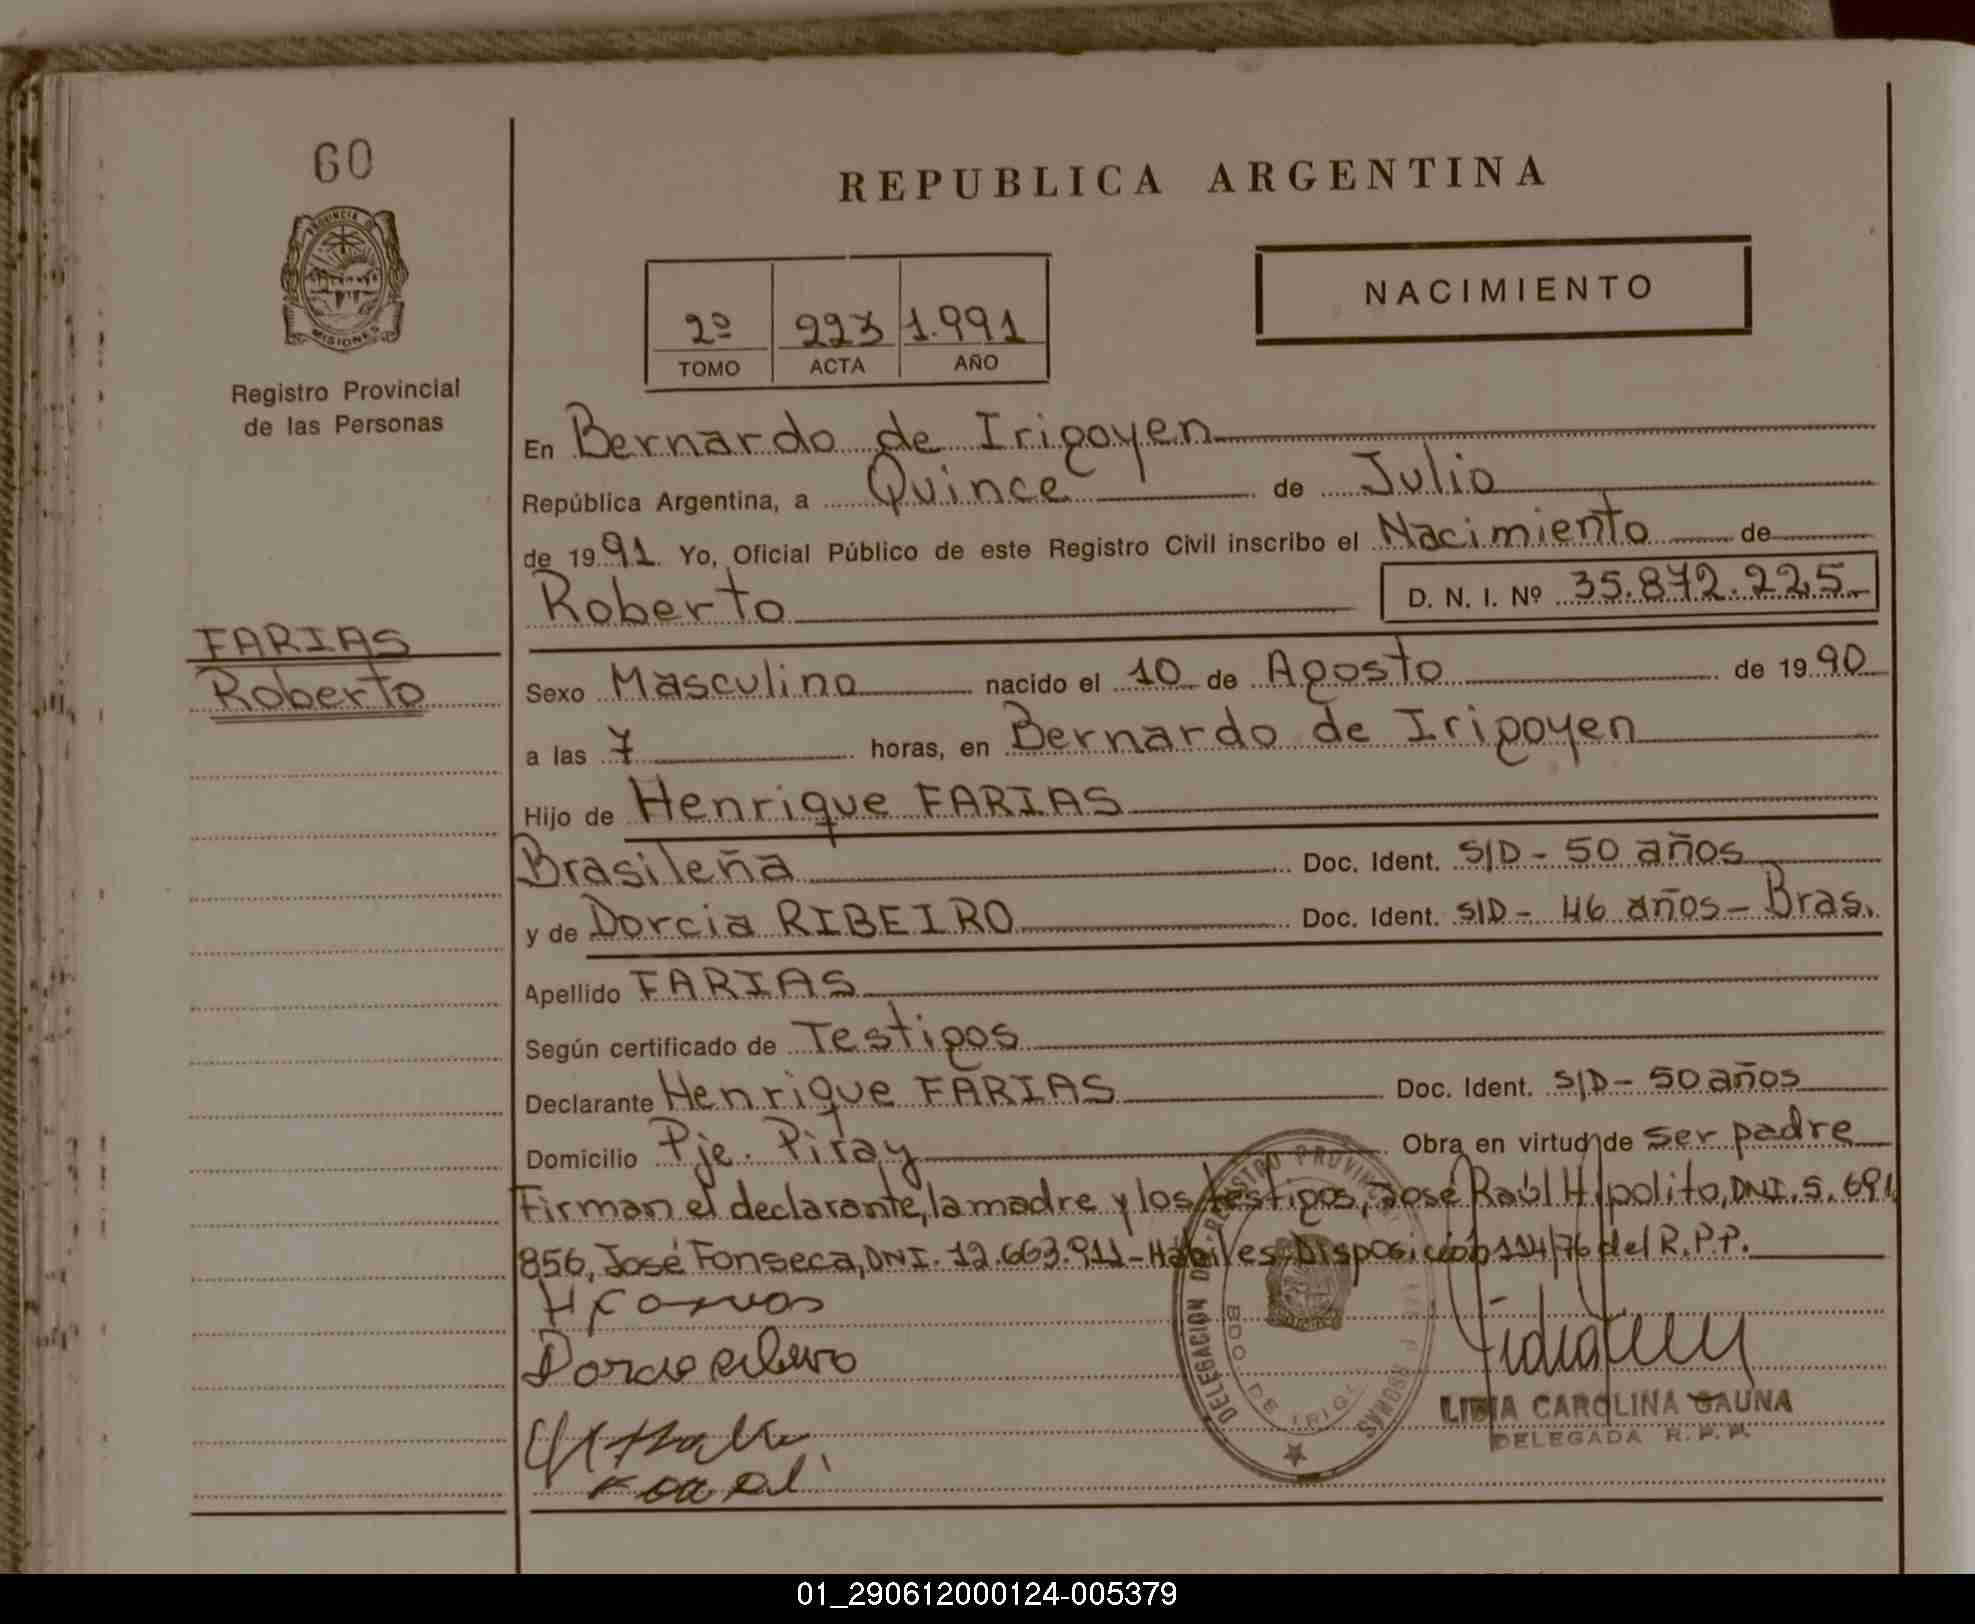 60
PROVINCIA D
MISIONES
Registro Provincial
de las Personas
FARIAS
Roberto
REPUBLICA ARGENTINA
NACIMIENTO
2º 223 1.991
TOMO ACTA AÑO
En Bernardo de Irigoyen
República Argentina, a Quince de Julio
de 1991 Yo, Oficial Público de este Registro Civil inscribo el Nacimiento de
Roberto D. N. I. Nº 35.872.225.-
Sexo Masculino nacido el 10 de Agosto de 1990
a las 7 horas, en Bernardo de Irigoyen
Hijo de Henrique FARIAS
Brasileña Doc. Ident. S/D - 50 años
y de Dorcia RIBEIRO Doc. Ident. S/D - 46 años - Bras.
Apellido FARIAS
Según certificado de Testigos
Declarante Henrique FARIAS Doc. Ident. S/D - 50 años
Domicilio Pje. Piray Obra en virtud de ser padre
Firman el declarante, la madre y los testigos, José Raúl Hipolito, DNI. 5.691
856, José Fonseca, DNI. 12.663.911 - Hábiles Disposición 114/76 del R.P.P.
DELEGACION DEL REGISTRO PROVINCIAL DE LAS PERSONAS
BDO. DE IRIGO
LIDIA CAROLINA GAUNA
DELEGADA R. P. P.
01_290612000124-005379